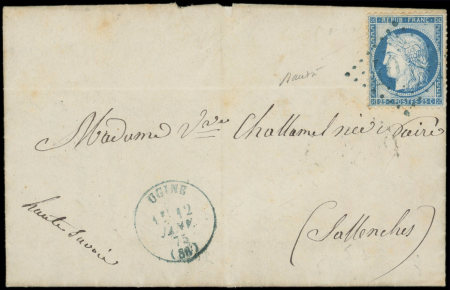 REPUB. FRANC.
25 POSTES 25 C
Madame Vve Challamel née
UGINE
12
JANV.
75
(88)
haute Savoie
(Sallenches)